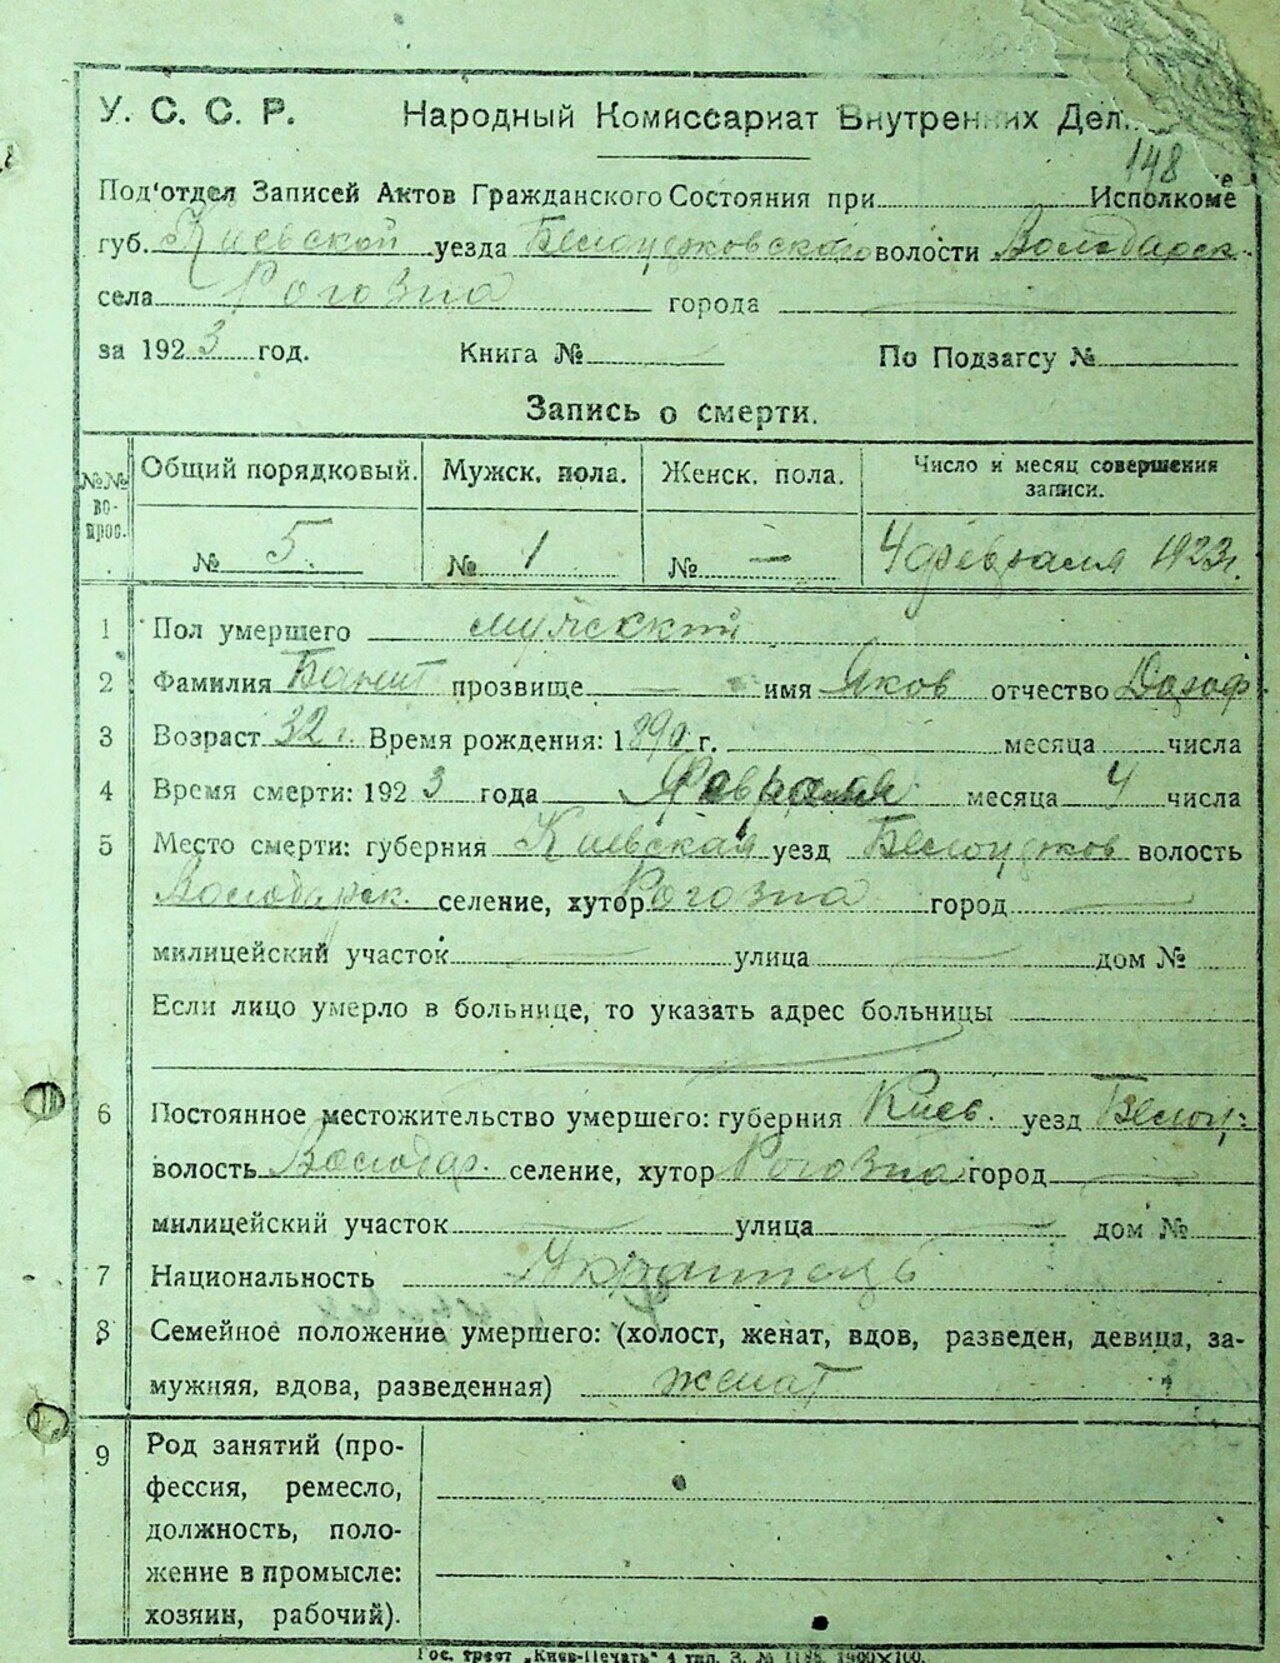 У. С. С. Р. Народный Комиссариат Внутренних Дел.
148
Под'отдел Записей Актов Гражданского Состояния при Исполкоме
губ. Киевской уезда Белоцерковского волости Володарск.
села Рогозна города
за 1923 год. Книга № По Подзагсу №
Запись о смерти.
№№ во-прос. Общий порядковый. Мужск. пола. Женск. пола. Число и месяц совершения записи.
№ 5. № 1 № — 4 февраля 1923 г.
1 Пол умершего мужской
2 Фамилия прозвище — имя Яков отчество
3 Возраст 32 г. Время рождения: 1890 г. месяца числа
4 Время смерти: 1923 года Февраля месяца 4 числа
5 Место смерти: губерния Киевская уезд Белоцерков волость
Володарск. селение, хутор Рогозна город —
милицейский участок — улица — дом №
Если лицо умерло в больнице, то указать адрес больницы
6 Постоянное местожительство умершего: губерния Киев. уезд Белоц:
волость Володар. селение, хутор Рогозна город —
милицейский участок — улица — дом №
7 Национальность
8 Семейное положение умершего: (холост, женат, вдов, разведен, девица, за-
мужняя, вдова, разведенная) женат
9 Род занятий (про-
фессия, ремесло,
должность, поло-
жение в промысле:
хозяин, рабочий).
Гос. трест „Киев-Печать" 4 тип. З. № 1900×100.